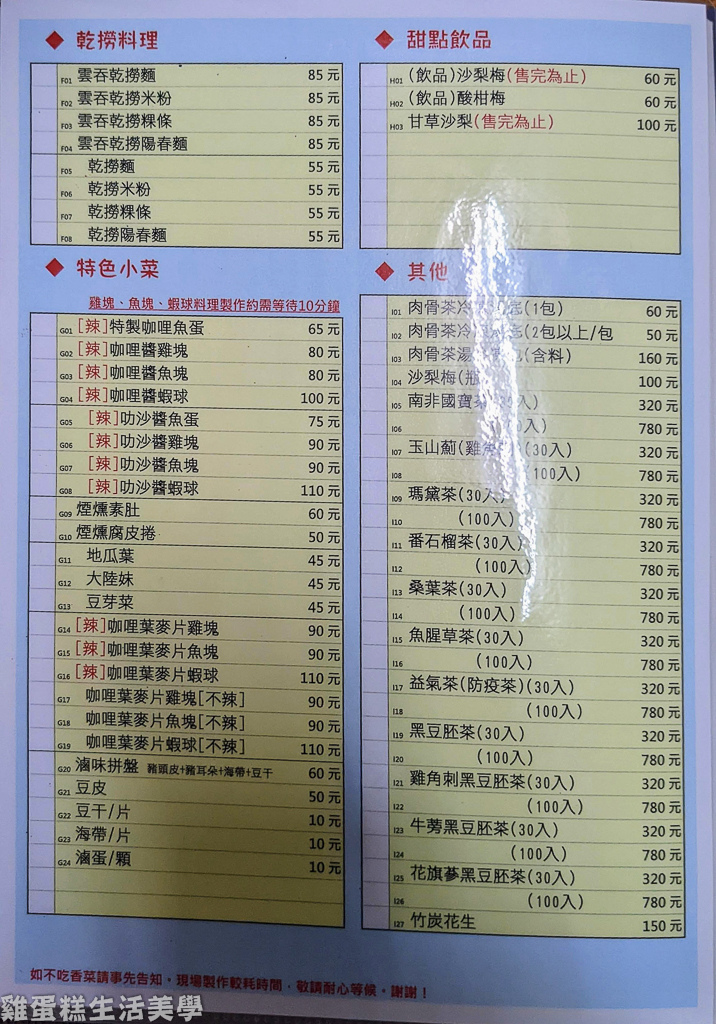 ◆ 乾撈料理
F01 雲吞乾撈麵 85 元
F02 雲吞乾撈米粉 85 元
F03 雲吞乾撈粿條 85 元
F04 雲吞乾撈陽春麵 85 元
F05 乾撈麵 55 元
F06 乾撈米粉 55 元
F07 乾撈粿條 55 元
F08 乾撈陽春麵 55 元
◆ 特色小菜
雞塊、魚塊、蝦球料理製作約需等待10分鐘
G01 [辣]特製咖哩魚蛋 65 元
G02 [辣]咖哩醬雞塊 80 元
G03 [辣]咖哩醬魚塊 80 元
G04 [辣]咖哩醬蝦球 100 元
G05 [辣]叻沙醬魚蛋 75 元
G06 [辣]叻沙醬雞塊 90 元
G07 [辣]叻沙醬魚塊 90 元
G08 [辣]叻沙醬蝦球 110 元
G09 煙燻素肚 60 元
G10 煙燻腐皮捲 50 元
G11 地瓜葉 45 元
G12 大陸妹 45 元
G13 豆芽菜 45 元
G14 [辣]咖哩葉麥片雞塊 90 元
G15 [辣]咖哩葉麥片魚塊 90 元
G16 [辣]咖哩葉麥片蝦球 110 元
G17 咖哩葉麥片雞塊[不辣] 90 元
G18 咖哩葉麥片魚塊[不辣] 90 元
G19 咖哩葉麥片蝦球[不辣] 110 元
G20 滷味拼盤 豬頭皮+豬耳朵+海帶+豆干 60 元
G21 豆皮 50 元
G22 豆干/片 10 元
G23 海帶/片 10 元
G24 滷蛋/顆 10 元
◆ 甜點飲品
H01 (飲品)沙梨梅(售完為止) 60 元
H02 (飲品)酸柑梅 60 元
H03 甘草沙梨(售完為止) 100 元
◆ 其他
I01 肉骨茶冷 (1包) 60 元
I02 肉骨茶冷 (2包以上/包 50 元
I03 肉骨茶湯 (含料) 160 元
I04 沙梨梅( 100 元
I05 南非國寶茶( 入) 320 元
I06 入) 780 元
I07 玉山薊(雞 (30入) 320 元
I08 100入) 780 元
I09 瑪黛茶(30入) 320 元
I10 (100入) 780 元
I11 番石榴茶(30入) 320 元
I12 (100入) 780 元
I13 桑葉茶(30入) 320 元
I14 (100入) 780 元
I15 魚腥草茶(30入) 320 元
I16 (100入) 780 元
I17 益氣茶(防疫茶)(30入) 320 元
I18 (100入) 780 元
I19 黑豆胚茶(30入) 320 元
I20 (100入) 780 元
I21 雞角刺黑豆胚茶(30入) 320 元
I22 (100入) 780 元
I23 牛蒡黑豆胚茶(30入) 320 元
I24 (100入) 780 元
I25 花旗蔘黑豆胚茶(30入) 320 元
I26 (100入) 780 元
I27 竹炭花生 150 元
如不吃香菜請事先告知。現場製作較耗時間，敬請耐心等候。謝謝！
雞蛋糕生活美學